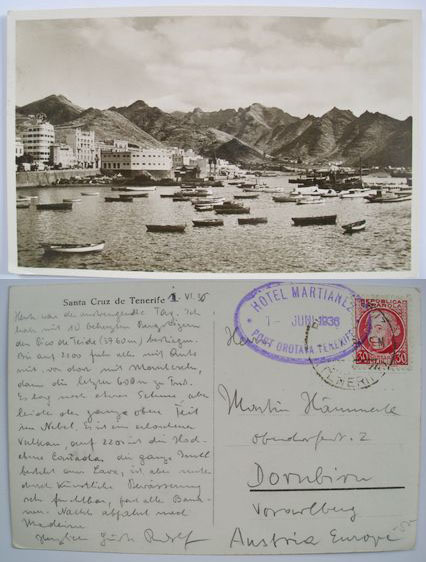 Santa Cruz de Tenerife 2. VI. 36
Heute war der anstrengende Tag. Ich
habe mit 10
den Pico de Teide (3760m) bestiegen.
Bis auf 2200 fuhr ich mit Auto
mit, von dort mit Maultieren,
dann die letzten 600m zu Fuß.
Es lag noch etwas Schnee, aber
leider der ganze obere Teil
im Nebel. Es ist ein erloschener
Vulkan, auf 2200 ist die Hoch-
ebene Cañadas. die ganze Insel
besteht aus Lava, ist aber
durch künstliche Bewässerung
sehr fruchtbar, fast alles Bana-
nen. Nachts Abfahrt nach
Madeira.
Herzliche Grüße Rudolf
HOTEL MARTIANEZ
1 - JUNI 1936
PORT OROTAVA TENERIFE
REPUBLICA
ESPAÑOLA
30 30
TENERIFE
Herrn
Martin Hämmerle
Oberdorferstr. 2
Dornbirn
Vorarlberg
Austria Europe